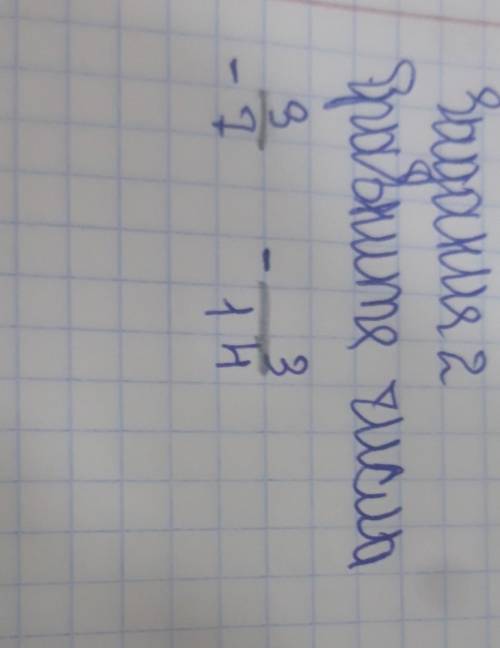 Задания 2
Зравните числа
3 3
- — - —
7 14